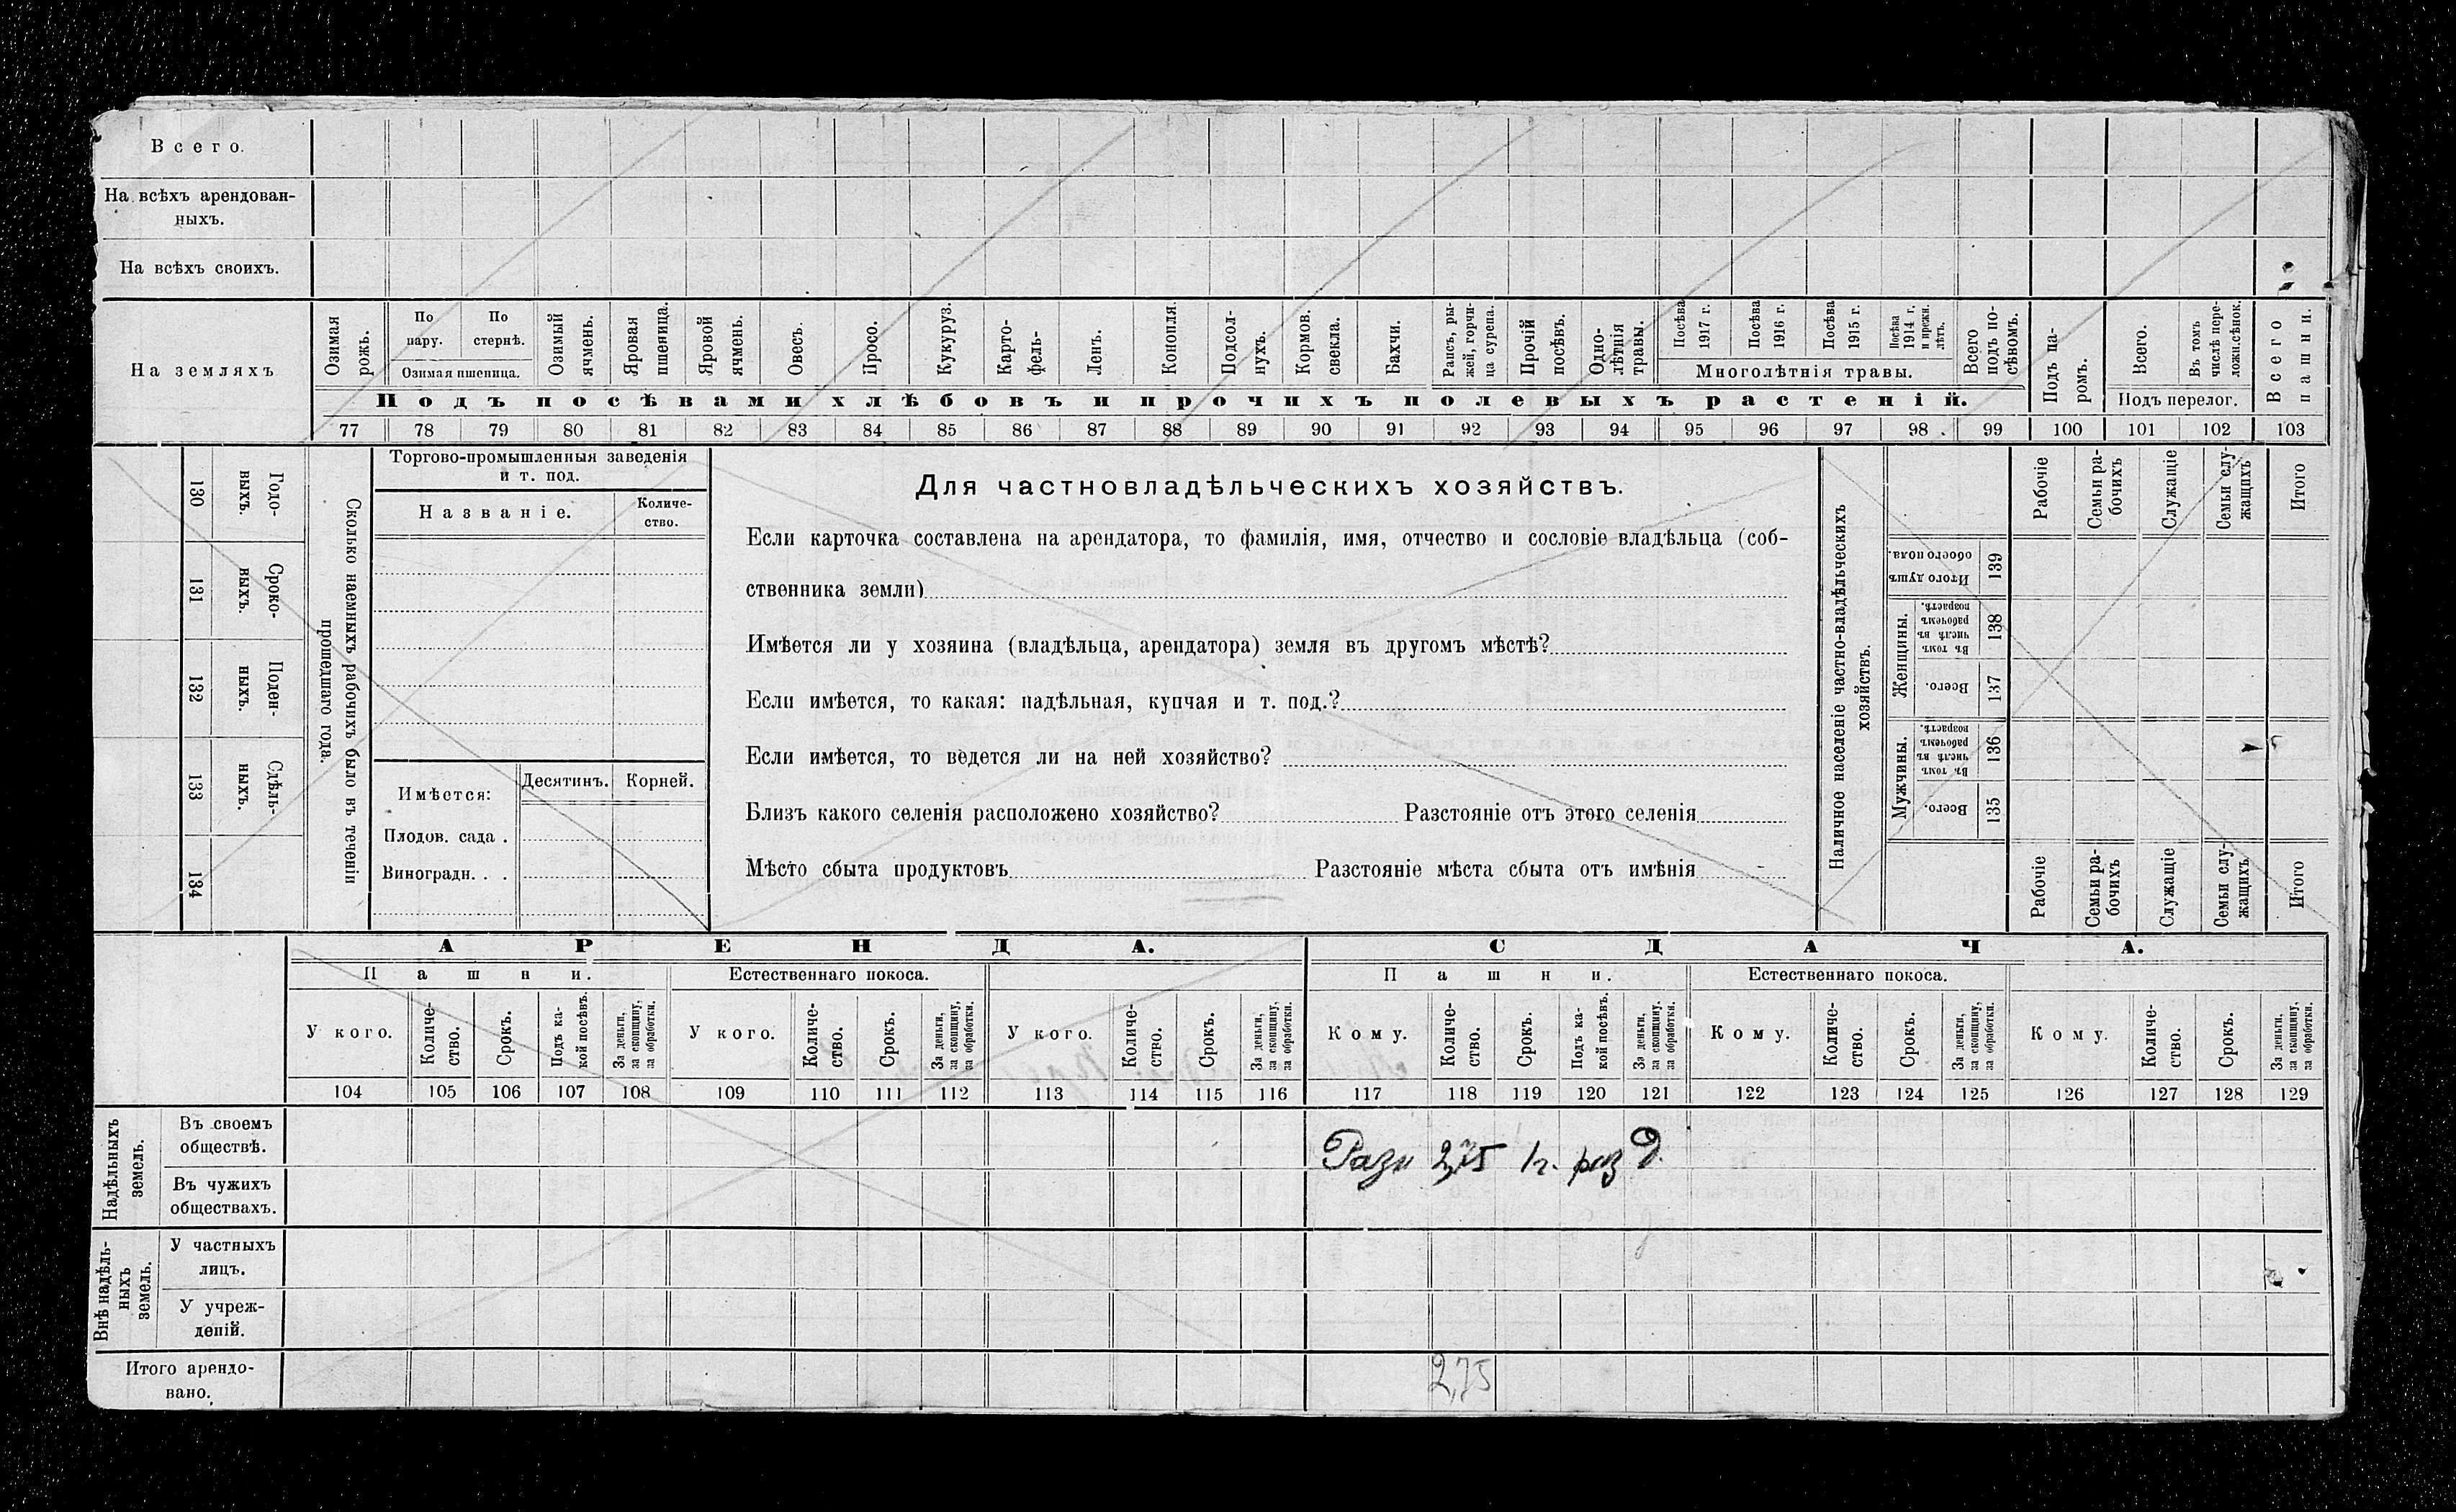 Всего.
На всѣхъ арендован-
ныхъ.
На всѣхъ своихъ.
На земляхъ
Озимая рожь.
По пару.
По стернѣ.
Озимая пшеница.
Озимый ячмень.
Яровая пшеница.
Яровой ячмень.
Овесъ.
Просо.
Кукуруз.
Карто-
фель-
Ленъ.
Конопля
Подсол-
нухъ.
Кормов. свекла.
Бахчи.
Рапсъ, ры-
жей, горчи-
ца сурепа.
Прочій посѣвъ.
Одно-
лѣтнія травы.
Посѣва 1917 г.
Посѣва 1916 г.
Посѣва 1915 г.
Посѣва 1914 г. и прежн. лѣтъ.
Многолѣтнія травы.
Всего подъ по-
сѣвомъ.
Подъ па-
ромъ.
Всего.
Въ томъ числѣ пере-
ложн.сѣнок.
Подъ перелог.
Всего пашни.
Подъ посѣвами хлѣбовъ и прочихъ полевыхъ растеній.
77 78 79 80 81 82 83 84 85 86 87 88 89 90 91 92 93 94 95 96 97 98 99 100 101 102 103
130 Годо-
ныхъ.
131 Сроко-
ныхъ.
132 Поден-
ныхъ.
133 Сдѣль-
ныхъ.
134
Сколько наемныхъ рабочихъ было въ теченіи
прошедшаго года.
Торгово-промышленныя заведенія
и т. под.
Названіе.
Количе-
ство.
Имѣется:
Десятинъ.
Корней.
Плодов. сада .
Виноградн. . .
Для частновладѣльческихъ хозяйствъ.
Если карточка составлена на арендатора, то фамилія, имя, отчество и сословіе владѣльца (соб-
ственника земли)
Имѣется ли у хозяина (владѣльца, арендатора) земля въ другомъ мѣстѣ?
Если имѣется, то какая: надѣльная, купчая и т. под.?
Если имѣется, то ведется ли на ней хозяйство?
Близъ какого селенія расположено хозяйство? Разстояніе отъ этого селенія
Мѣсто сбыта продуктовъ Разстояніе мѣста сбыта отъ имѣнія
Наличное населеніе частно-владѣльческихъ
хозяйствъ.
Рабочіе
Семьи ра-
бочихъ
Служащіе
Семьи слу-
жащихъ
Итого
Итого душъ обоего пола. 139
Женщины.
Въ томъ числѣ въ рабочемъ возрастѣ. 138
Всего. 137
Мужчины.
Въ томъ числѣ въ рабочемъ возрастѣ. 136
Всего. 135
Рабочіе
Семьи ра-
бочихъ
Служащіе
Семьи слу-
жащихъ
Итого
АРЕНДА.
СДАЧА.
Пашни.
Естественнаго покоса.
Пашни.
Естественнаго покоса.
У кого.
Количе-
ство.
Срокъ.
Подъ ка-
кой посѣвъ.
За деньги, за скопщину, за обработки.
У кого.
Количе-
ство.
Срокъ.
За деньги, за скопщину, за обработки.
У кого.
Количе-
ство.
Срокъ.
За деньги, за скопщину, за обработки.
Кому.
Количе-
ство.
Срокъ.
Подъ ка-
кой посѣвъ.
За деньги, за скопщину. за обработки.
Кому.
Количе-
ство.
Срокъ.
За деньги, за скопщину, за обработки.
Кому.
Количе-
ство.
Срокъ.
За деньги, за скопщину, за обработки.
104 105 106 107 108 109 110 111 112 113 114 115 116 117 118 119 120 121 122 123 124 125 126 127 128 129
Надѣльныхъ
земель.
Въ своемъ
обществѣ.
Разн 2,75 1 г. раз д.
Въ чужихъ
обществахъ.
Внѣ надѣль-
ныхъ
земель.
У частныхъ
лицъ.
У учреж-
деній.
Итого арендо-
вано.
2,75